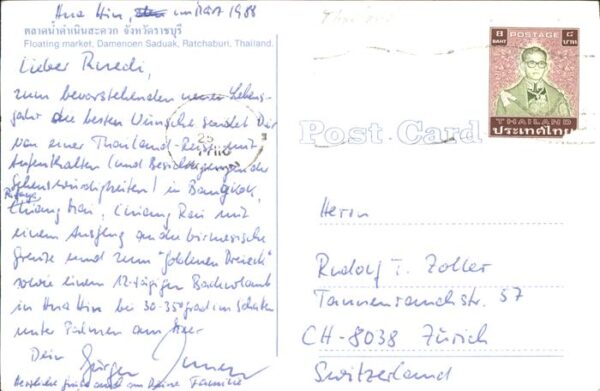 Hua Hin, im März 1988
ตลาดน้ำดำเนินสะดวก จังหวัดราชบุรี
Floating market, Damenoen Saduak, Ratchaburi, Thailand.
Lieber Ruedi,
zum bevorstehenden neuen Lebens-
jahr die besten Wünsche sendet Dir
von einer Thailand-Reise mit
Aufenthalten (und Besichtigungen der
Sehenswürdigkeiten) in Bangkok,
Pattaya
Chiang Mai, Chiang Rai mit
einem Ausflug an die birmesische
Grenze und zum "goldenen Dreieck"
sowie einem 12-tägigen Badeurlaub
in Hua Hin bei 30-35 grad im Schatten
unter Palmen am Meer
Dein Jürgen
Herzliche Grüße auch an Deine Familie
Thailand
8 POSTAGE ๘
BAHT บาท
THAILAND
ประเทศไทย
25
Post Card
Herrn
Rudolf T. Zoller
Tannenrauchstr. 57
CH-8038 Zürich
Switzerland